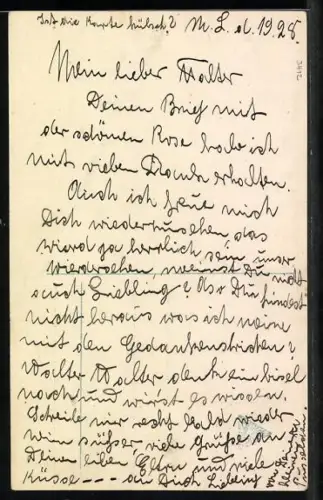 Ist die Karte hübsch? M. L. d. 19.28.
3412
Mein lieber Walter
Deinen Brief mit
der schönen Rose habe ich
mit vielen Dank erhalten.
Auch ich freue mich
Dich wiederzusehen, das
wierd ja herrlich sein unser
wiedersehen, meinst Du nicht
auch Liebling? Also Du findest
nicht heraus was ich meine
mit den Gedankenstrichen?
Walter Walter denk ein bisel
nach und wirst es wissen.
Schreibe mir recht bald wieder
mein süßer, viele Grüße an
Deinen lieben Eltern und viele
Küsse --- an Dich Liebling
von Deiner